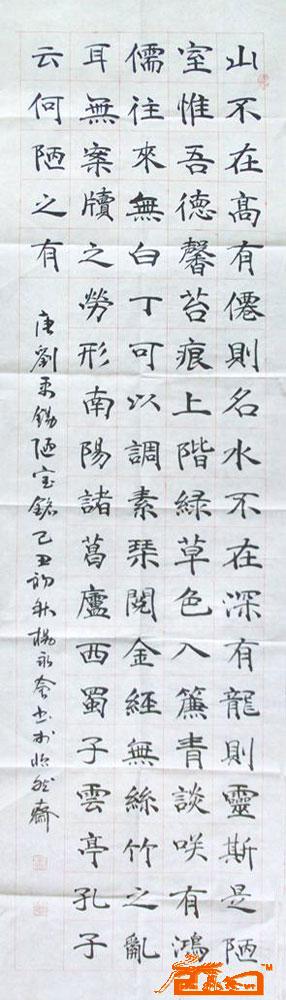 山不在高有僊則名水不在深有龍則靈斯是陋
室惟吾德馨苔痕上階綠草色入簾青談咲有鴻
儒往來無白丁可以調素琴閱金經無絲竹之亂
耳無案牘之勞形南陽諸葛廬西蜀子雲亭孔子
云何陋之有
唐劉禹錫陋室銘己丑初秋楊永奎書於怡然齋